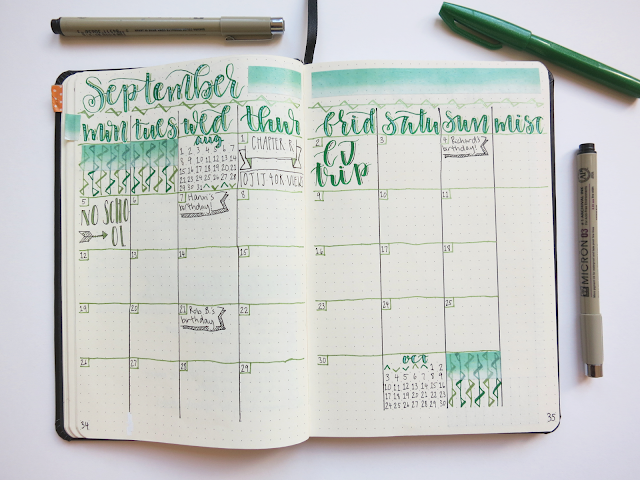 September
mon tues wed thur frid satu sun misc
aug
1 2 3 4 5 6 7
8 9 10 11 12 13 14
15 16 17 18 19 20 21
22 23 24 25 26 27 28
29 30 31
1 CHAPTER R
2 CJ
trip
3
4 Richard's
birthday!
5 NO SCHO
OL
6
7 Hanni's
birthday!
8
9
10
11
12
13
14
15
16
17
18
19
20
21 Rob B.'s
birthday
22
23
24
25
26
27
28
29
30
oct
1 2
3 4 5 6 7 8 9
10 11 12 13 14 15 16
17 18 19 20 21 22 23
24 25 26 27 28 29 30
34
35
MICRON